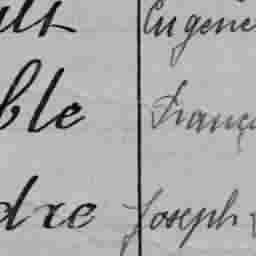 ult Eugene
ble Franç
dre Joseph